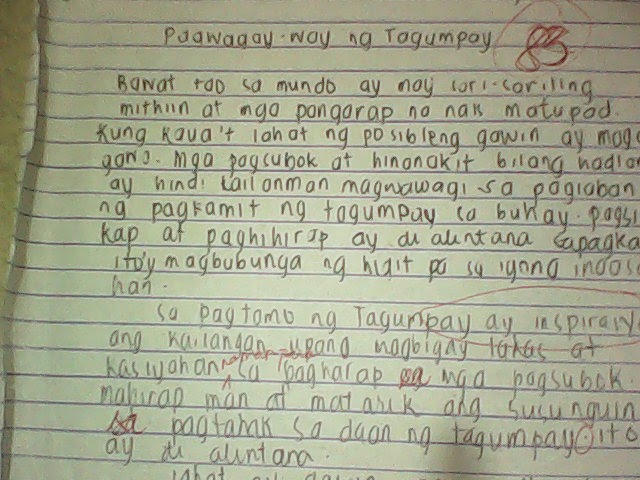 Pagwagay-way ng Tagumpay 83
Bawat tao sa mundo ay may sari-sariling
mithiin at mga pangarap na nais matupad.
Kung kaya't lahat ng posibleng gawin ay mag
gawa. Mga pagsubok at hinanakit bilang hadla
ay hindi kailanman magwawagi sa paglaban
ng pagkamit ng tagumpay sa buhay. Pagsi
kap at paghihirap ay di alintana sapagka
ito'y magbubunga ng higit pa sa iyong inaas
han.
Sa pagtamo ng Tagumpay ay inspirasy
ang kailangan upang magbigay lakas at
kasiyahan sa pagharap sa mga pagsubok
mahirap man at matarik ang susunguin
sa pagtahak sa daan ng tagumpay ito
ay di alintana.
lahat ay